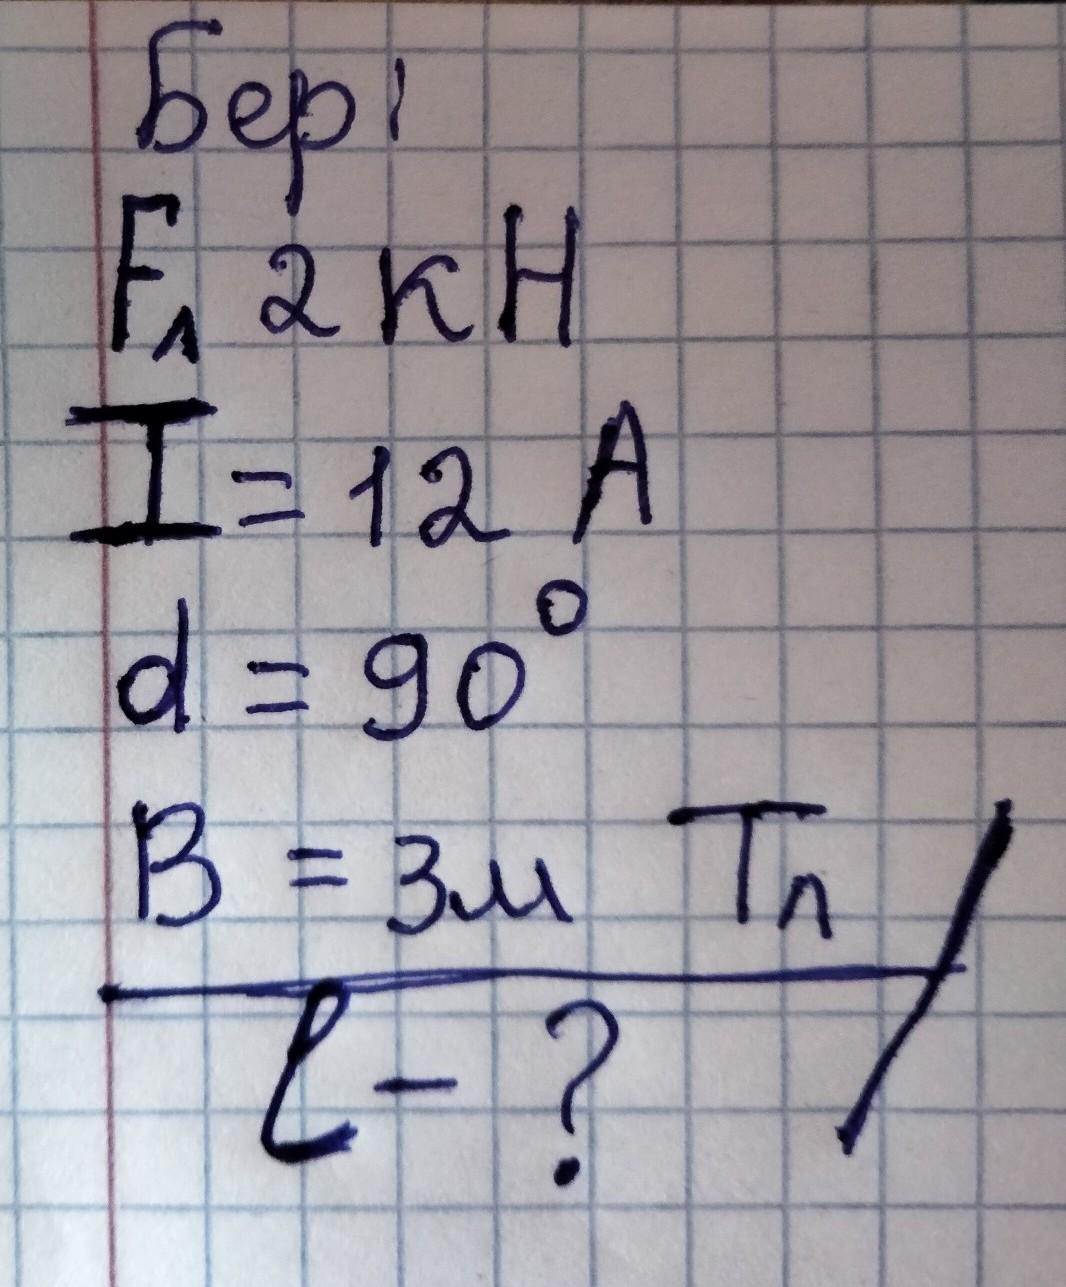 Бер
F₁ 2 кН
I = 12 А
d = 90°
B = 3м Тл
l - ?